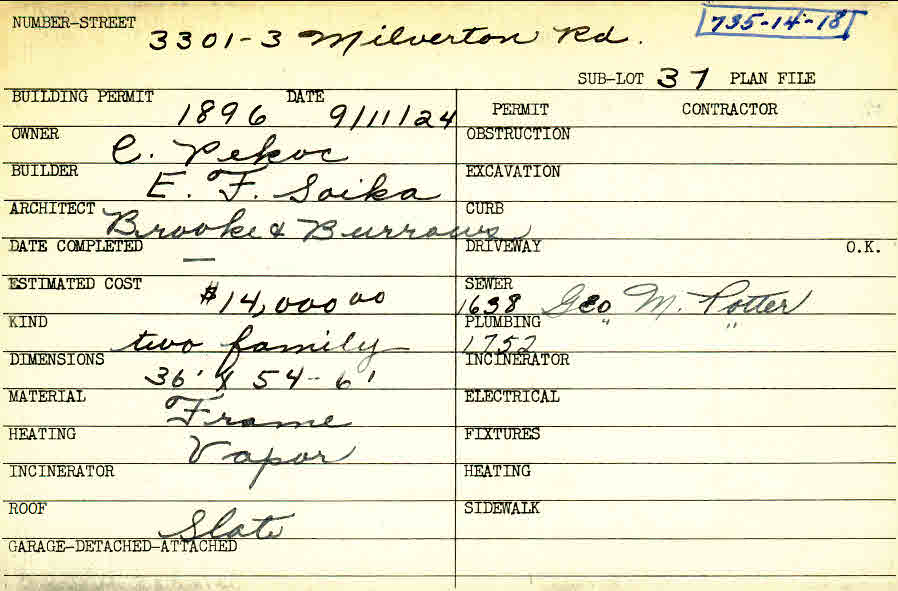 NUMBER-STREET 3301-3 Milverton Rd. 735-14-18
SUB-LOT 37 PLAN FILE
BUILDING PERMIT 1896 DATE 9/11/24
OWNER C. Pekoc
BUILDER E. F. Soika
ARCHITECT Brooke & Burrows
DATE COMPLETED —
ESTIMATED COST $14,000 00
KIND two family
DIMENSIONS 36' X 54-6'
MATERIAL Frame
HEATING Vapor
INCINERATOR
ROOF Slate
GARAGE-DETACHED-ATTACHED
PERMIT CONTRACTOR
OBSTRUCTION
EXCAVATION
CURB
DRIVEWAY O.K.
SEWER
1638 Geo M. Potter
PLUMBING " "
1752
INCINERATOR
ELECTRICAL
FIXTURES
HEATING
SIDEWALK